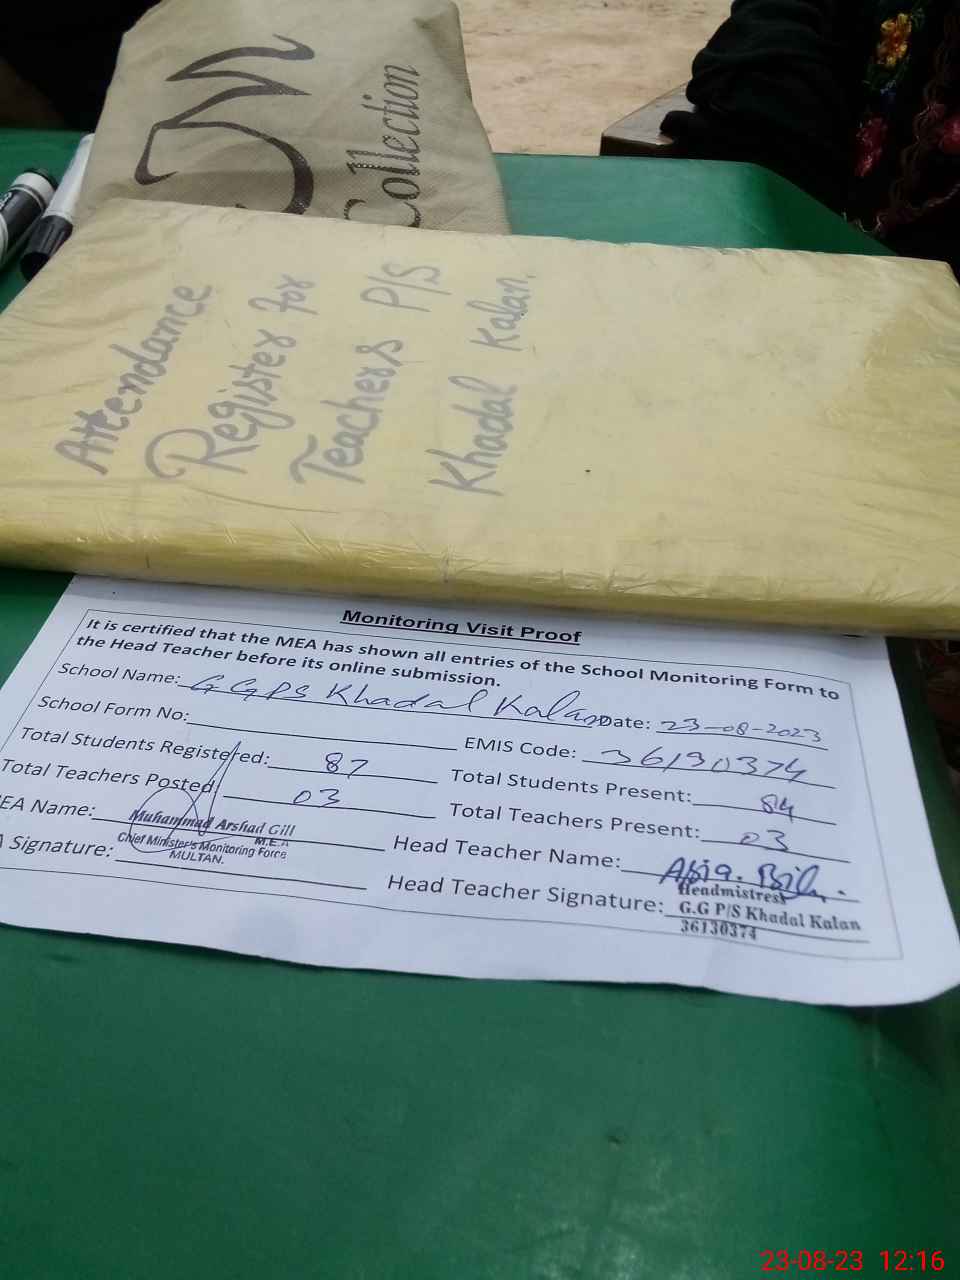 Collection
Attendance
Register for
Teachers P/S
Khadal Kalan.
Monitoring Visit Proof
It is certified that the MEA has shown all entries of the School Monitoring Form to
the Head Teacher before its online submission.
School Name: GGPS Khadal Kalan Date: 23-08-2023
School Form No: EMIS Code: 36130374
Total Students Registered: 87 Total Students Present: 84
Total Teachers Posted: 03 Total Teachers Present: 03
EA Name: Muhammad Arshad Gill Head Teacher Name:
M.E.A
Chief Minister's Monitoring Force
MULTAN.
Signature: Head Teacher Signature:
Headmistress
G.G P/S Khadal Kalan
36130374
23-08-23 12:16